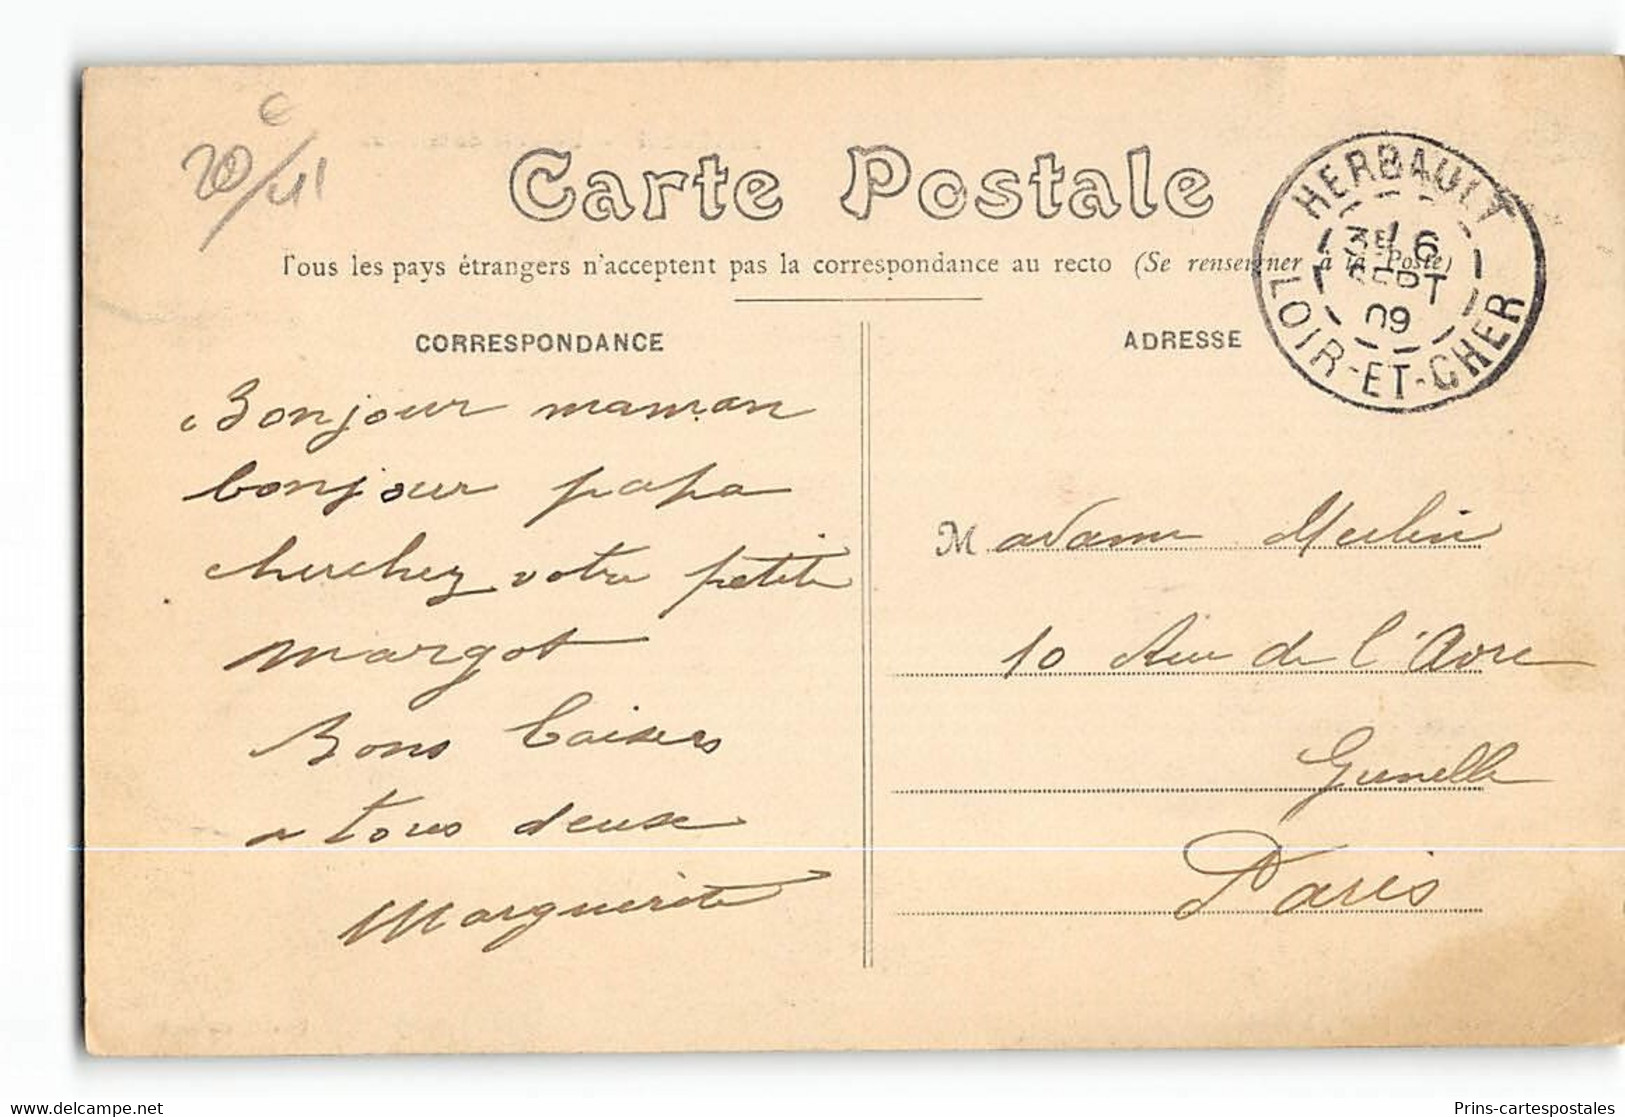 20/41
€
Carte Postale
Tous les pays étrangers n'acceptent pas la correspondance au recto (Se renseigner à la Poste)
HERBAULT
3E / 6
SEPT
09
LOIR-ET-CHER
CORRESPONDANCE
Bonjour maman
bonjour papa
cherchez votre petite
margot
Bons baisers
a tous deux
Marguerite
ADRESSE
Madame Merlin
10 Rue de l'Avre
Grenelle
Paris
www.delcampe.net
Prins-cartespostales